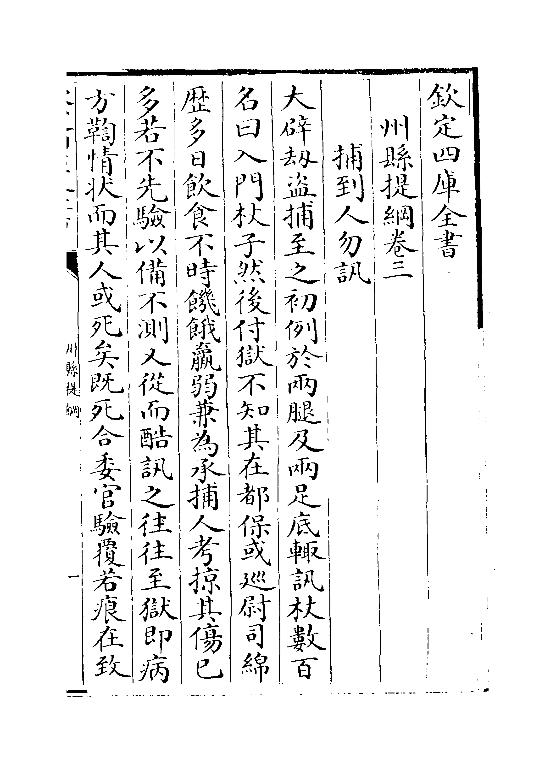 欽定四庫全書
州縣提綱卷三
捕到人勿訊
大辟劫盜捕至之初例於兩腿及兩足底輙訊杖數百
名曰入門杖子然後付獄不知其在都保或廵尉司綿
歴多日飲食不時饑餓羸弱兼為承捕人考掠其傷已
多若不先驗以備不測又從而酷訊之往往至獄即病
方鞫情狀而其人或死矣既死合委官驗覆若痕在致
州縣提綱
一